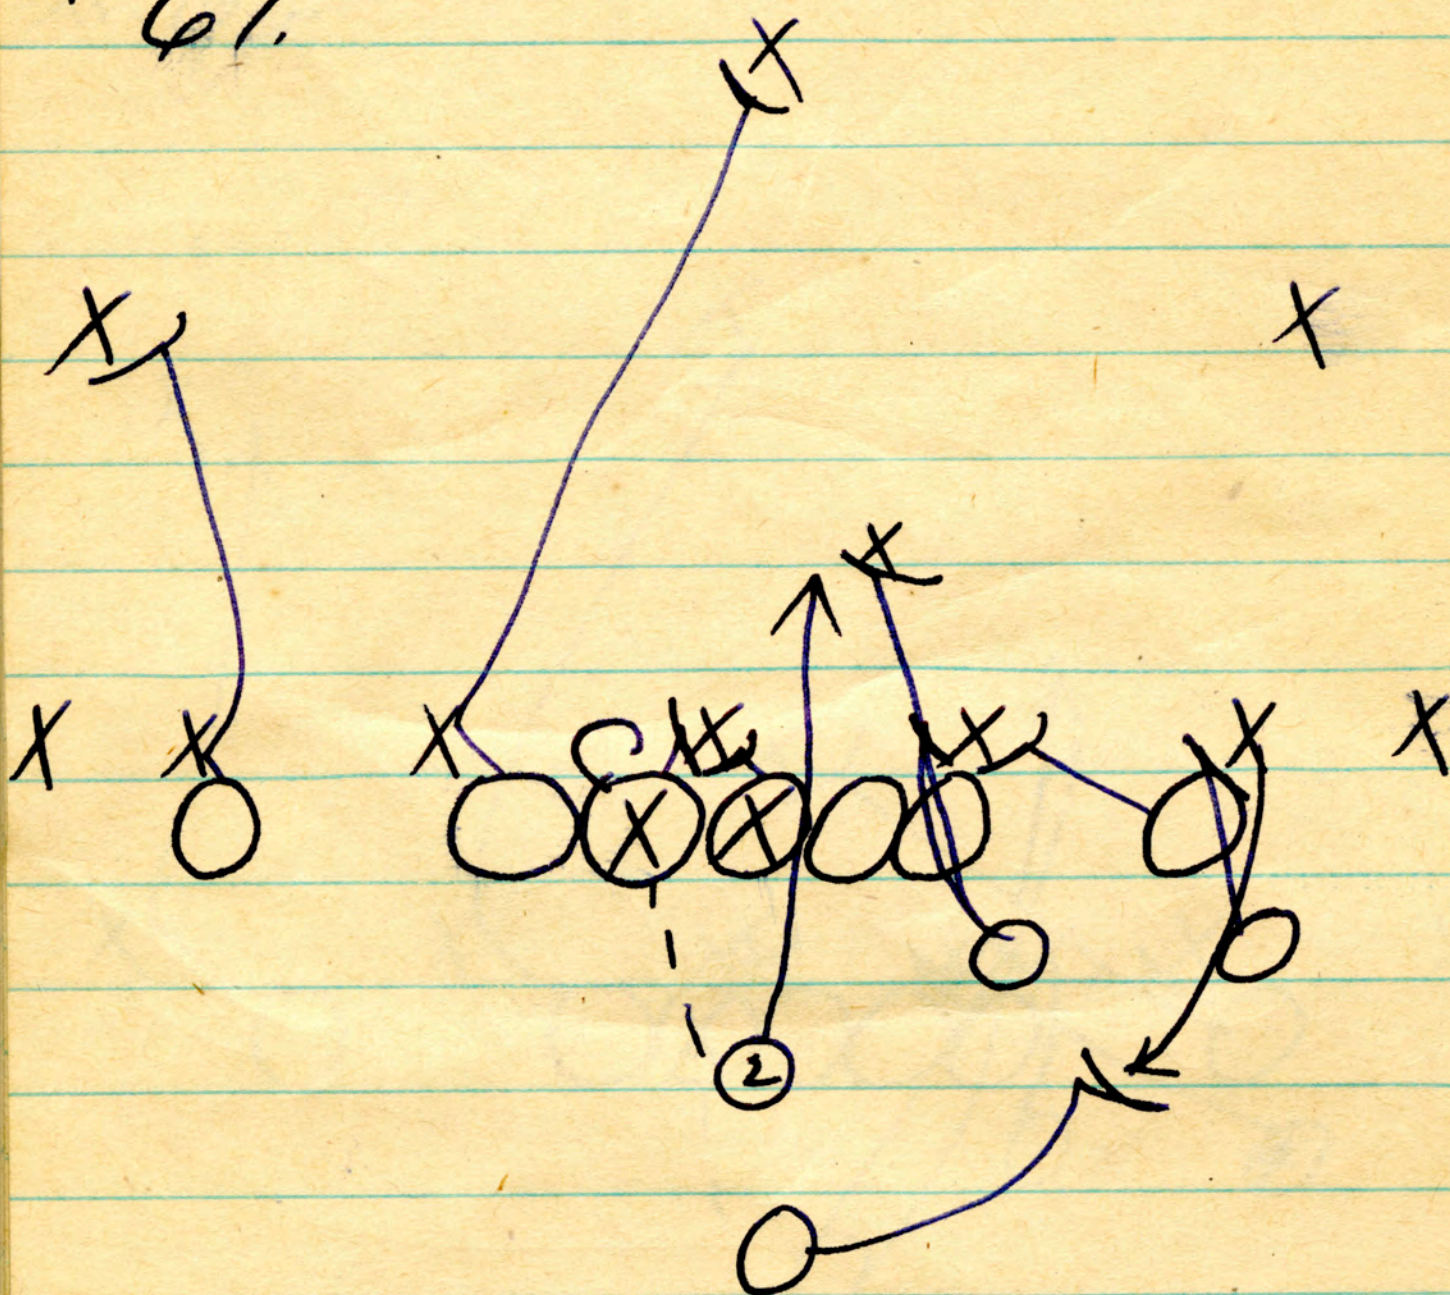 61.
X
X
X
X
X X X X X X X
X X
2